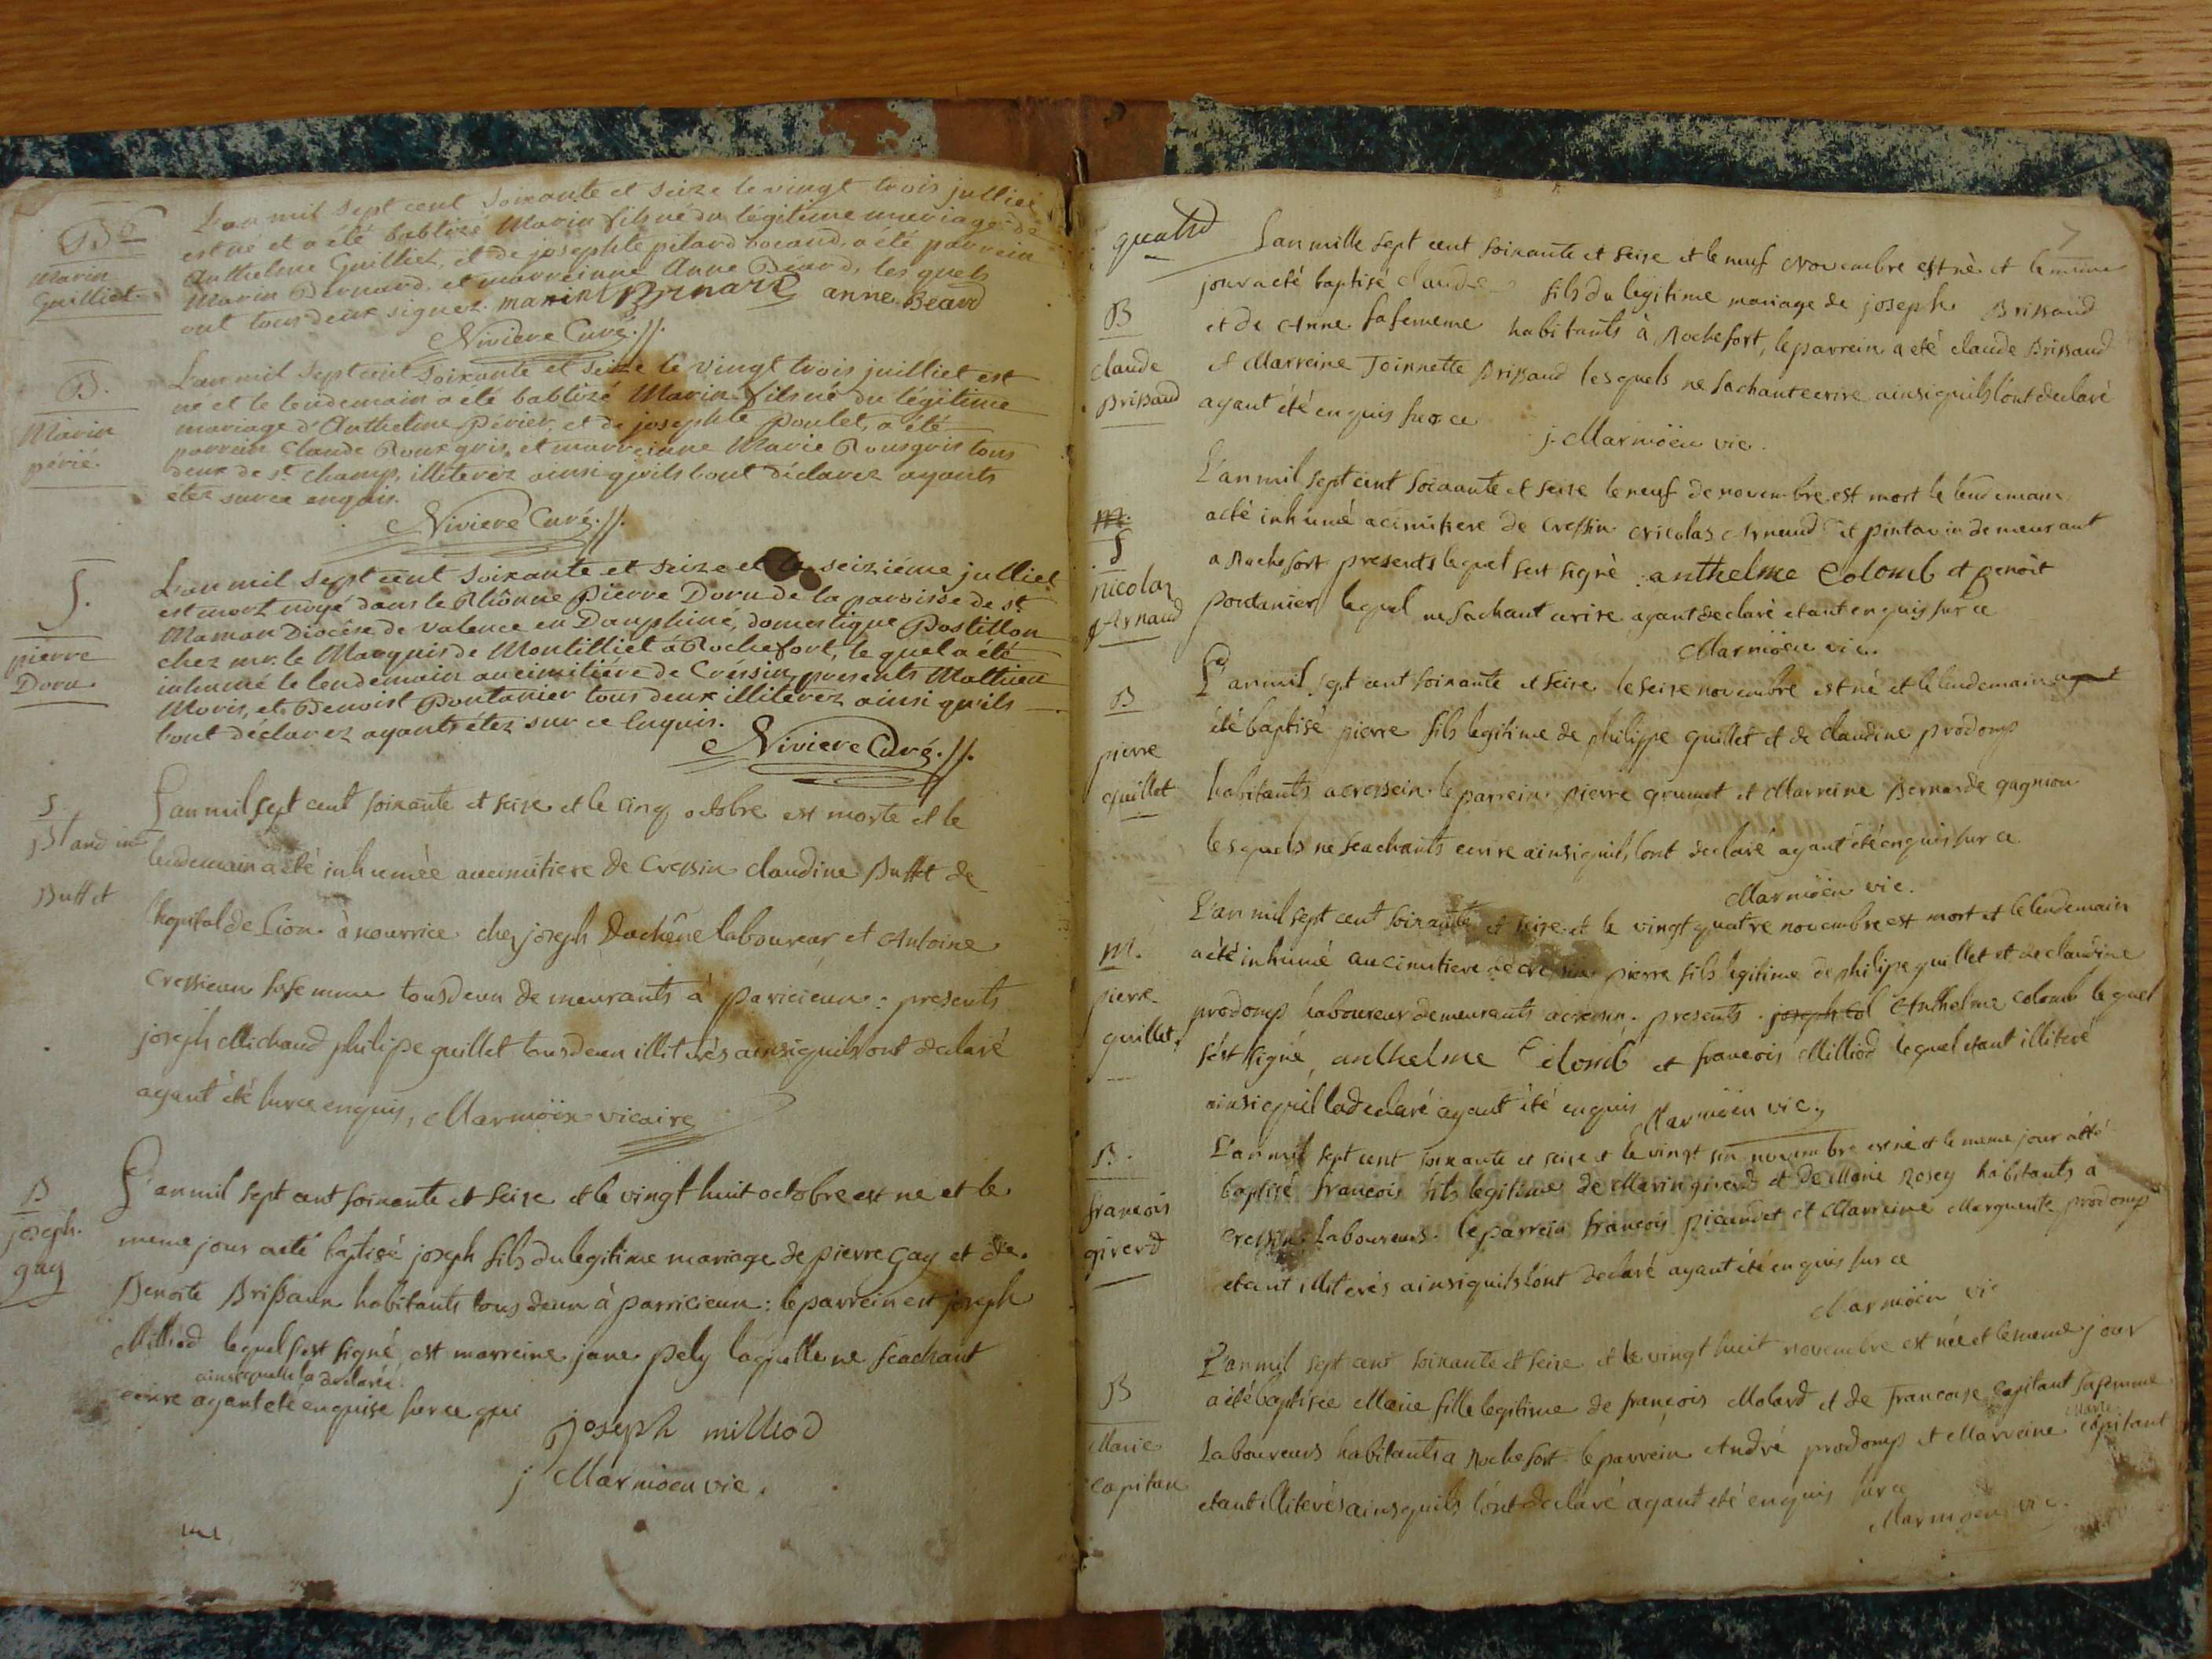 Bé
Marin
Guilliet.
L'an mil sept cent soixante et seize le vingt trois julliet
est né et a été babtizé Marin fils né du légitime mariage de
Anthelme Guilliet, et de josephte pitard, a été parrein
Marin Bernard, et marreinne Anne Béard, les quels
ont tous deux signez. marin Bernard anne Beard
Niviere Curé.//.
B.
Marin
périé.
L'an mil sept cent soixante et seize le vingt trois juilliet est
né et le lendemain a été babtizé Marin fils né du légitime
mariage d'Anthelme Périer, et de josephte Poulet, a été
parrein Claude Rousgris, et marreinne Marie Rousgris tous
deux de st. Champ, illiterez ainsi qu'ils l'ont déclarez ayants
étez sur ce enquis.
Niviere Curé.//.
S.
pierre
Doru
L'an mil sept cent soixante et seize et le seiziéme julliet
est mort noyé dans le Rhônne Pierre Doru de la paroisse de st.
Maman Diocèse de valence en Dauphiné, domestique Postillon
chez mr. le Marquis de Montilliet à Rochefort, le quel a été
inhumé le lendemain au cimitiére de Créssin, presents Mathieu
Moris, et Benoist Pontanier tous deux illiterez ainsi qu'ils
l'ont déclarez ayants étez sur ce Enquis.
Niviere Curé.//.
S
Buffet
L'an mil sept cent soixante et seise et le cinq octobre est morte et le
lendemain a été inhumée au cimitiere de Cressin claudine Buffet de
l'hopital de Lion à nourrice chez joseph Duchêne laboureur et Antoine
Cressieux sa femme tous deux demeurants à paricieux: presents
joseph Michaud philipe guillet tous deux illiterés ainsi quils ont declaré
ayant été sur ce enquis, Marmöex vicaire
B
joseph.
gay
L'an mil sept cent soixante et seise et le vingt huit octobre est né et le
meme jour a eté baptisé joseph fils du legitime mariage de pierre Gay et de
Benoite Brissaux habitants tous deux à parricieux: le parrein est joseph
Milliod lequel s'est signé est marreine jane pely laquelle ne scachant
ainsi quelle la declarée
ecrire ayant eté enquise sur ce que
joseph milliod
j Marmöeu vic.
quatre
7
B
claude
Brissaud
L'an mille sept cent soixante et seise et le neuf Novembre est né et le meme
jour a été baptisé claude fils du legitime mariage de joseph Brissaud
et de Anne sa fememe habitants à Rochefort, le parrein a eté claude Brissaud
et Marreine Toinnette Brissaud lesquels ne sachant ecrire ainsi quils l'ont declaré
ayant été enquis sur ce
j. Marmöeu vic.
m.
S
nicolas
Arnaud
L'an mil sept cent soixante et seise le neuf de novembre est mort le lendemain
a été inhumé a cimitiere de Cressin Nicolas Arnaud dit pintavin demeurant
a Rochefort presents lequel sest signé: anthelme Colomb et Benoit
pontanier lequel ne sachant ecrire ayant declaré etant enquis sur ce
Marmöeu vic.
B
pierre
guillet
L'an mil sept cent soixante et seise le seise novembre est né et le lendemain ayant
été baptisé pierre fils legitime de philippe guillet et de claudine prodomp
habitants a cressein le parrein pierre grumet et Marreine Bernarde gagnion
lesquels ne scachants ecrire ainsi quils lont declaré ayant été enquis sur ce
Marmöeu vic.
m.
pierre
guillet
L'an mil sept cent soixante et seise et le vingt quatre novembre est mort et le lendemain
a été inhumé au cimitiere de cressin pierre fils legitime de philipe guillet et de claudine
prodomp laboureur demeurants a cressin. presents joseph col Anthelme colomb lequel
s'est signé, anthelme Colomb et francois Milliod lequel etant illiteré
ainsi quil la declaré ayant été enquis Marmöeu vic.
B.
francois
giverd
L'an mil sept cent soixante et seise et le vingt six novembre est né et le meme jour a été
baptisé francois fils legitime de Marin giverd et de Marie Rosey habitants à
cressin Laboureurs. le parrein francois picardet et Marreine Marguerite prodomp
etant illiterés ainsi quils lont declaré ayant été enquis sur ce
Marmöeu vic
B
Marie
capitan
L'an mil sept cent soixante et seise et le vingt huit novembre est née et le meme jour
a été baptisée Marie fille legitime de francois Molard et de Francoise Capitant sa femme
Laboureurs habitants a Rochefort le parrein André prodomp et Marreine Marie capitant
etant illiterés ainsi quils l'ont declaré ayant eté enquis sur ce
Marmöeu vic.